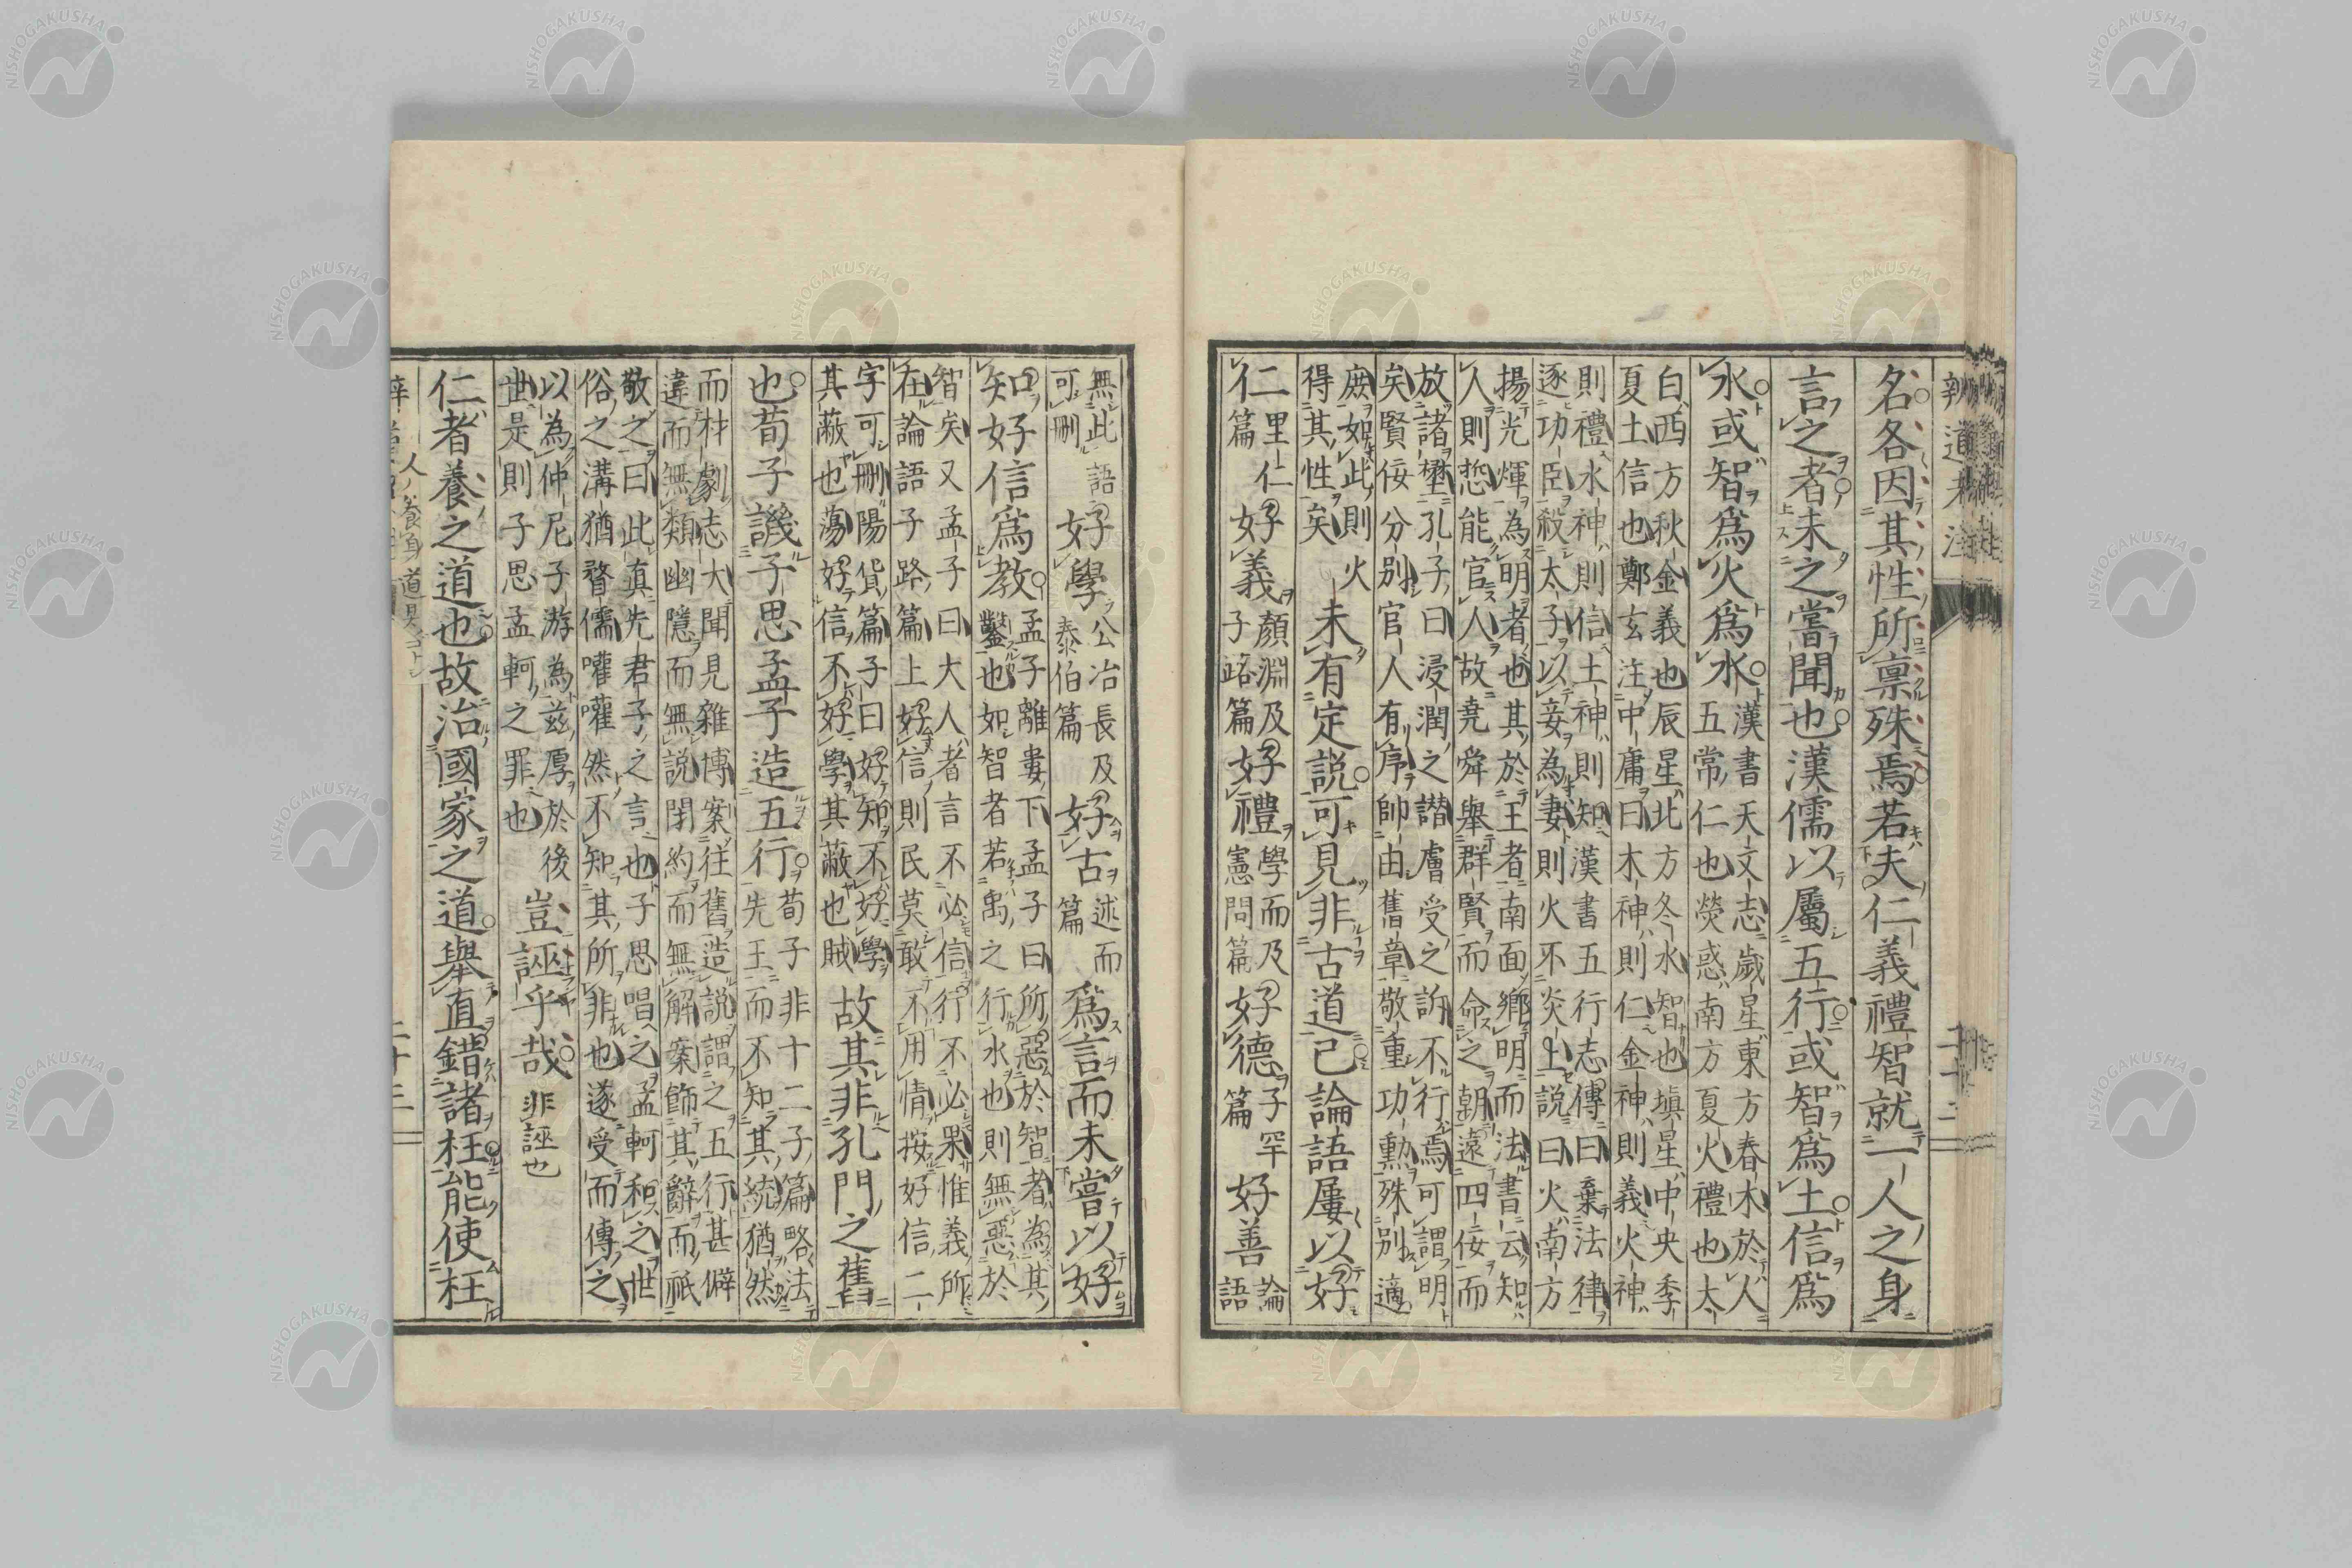 辨道考注 二十二
名各因其性所禀殊焉若夫仁義禮智就一人之身
言之者未之嘗聞也漢儒以屬五行或智爲土信爲
水或智爲火爲水漢書天文志歲星東方春木於人
五常仁也熒惑南方夏火禮也太
白西方秋金義也辰星北方冬水智也塡星中央季
夏土信也鄭玄注中庸曰木神則仁金神則義火神
則禮水神則信土神則知漢書五行志傳曰棄法律
逐功臣殺太子以妾為妻則火不炎上説曰火南方
揚光煇為明者也其於王者南面鄉明而法書云知
人則悊能官人故堯舜舉群賢而命之朝遠四佞而
放諸壄孔子曰浸潤之譖膚受之訴不行焉可謂明
矣賢佞分別官人有序帥由舊章敬重功勳殊別適
庶如此則火得其性矣未有定説可見非古道已論語屢以好
仁里仁篇好義顏淵及子路篇好禮學而及憲問篇好德子罕篇好善論語
無此語可刪好學公冶長及泰伯篇好古述而篇爲言而未嘗以好
知好信爲教孟子離婁下孟子曰所惡於智者為其
鑿也如智者若禹之行水也則無惡於
智矣又孟子曰大人者言不必信行不必果惟義所
在論語子路篇上好信則民莫敢不用情按好信二
字可刪陽貨篇子曰好知不好學
其蔽也蕩好信不好學其蔽也賊故其非孔門之舊
也荀子譏子思孟子造五行荀子非十二子篇略法
先王而不知其統猶然
而材劇志大聞見雜博案往舊造説謂之五行甚僻
違而無類幽隱而無説閉約而無解案飾其辭而祇
敬之曰此真先君子之言也子思唱之孟軻和之世
俗之溝猶瞀儒嚾嚾然不知其所非也遂受而傳之
以為仲尼子游為茲厚於後
世是則子思孟軻之罪也豈誣乎哉非誣也
仁者養之道也故治國家之道舉直錯諸枉能使枉
NISHOGAKUSHA